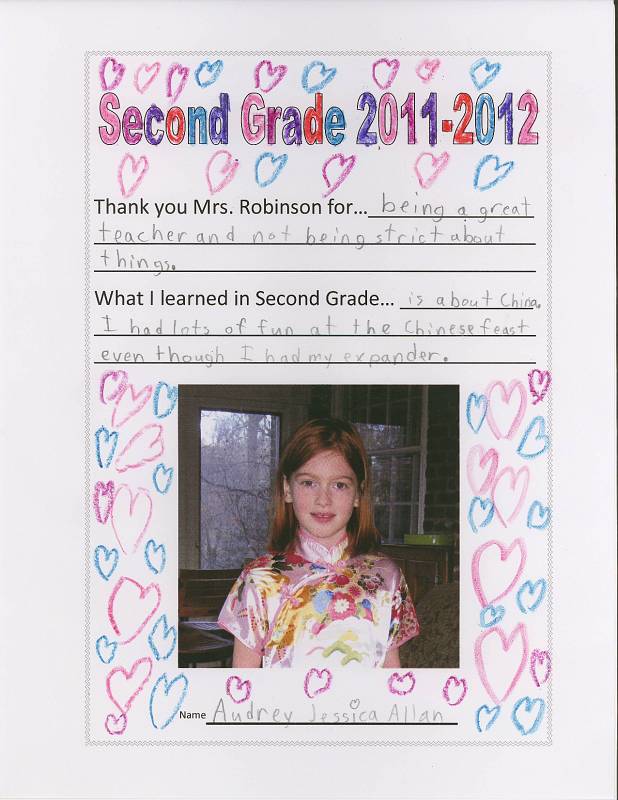 Second Grade 2011-2012
Thank you Mrs. Robinson for... being a great
teacher and not being strict about
things.
What I learned in Second Grade... is about China.
I had lots of fun at the Chinese feast
even though I had my expander.
Name Audrey Jessica Allan